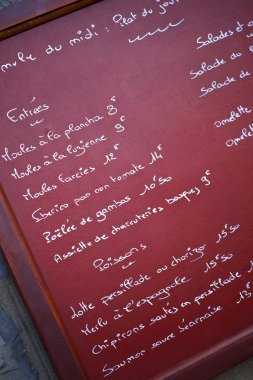 menu du midi : Plat du jour
Entrées
Moules à la plancha 8€
Moules à la luzienne 9€
Moules farcies 12€
Iberico pan con tomate 14€
Poêlée de gambas 10€50
Assiette de charcuteries basques 9€
Poissons
Lotte persillade ou chorizo 15€50
Merlu à l'espagnole 15€50
Chipirons sautés en persillade
Saumon sauce béarnaise 13€
Salades d'
Salade du
Salade de
Omelette
Omelette